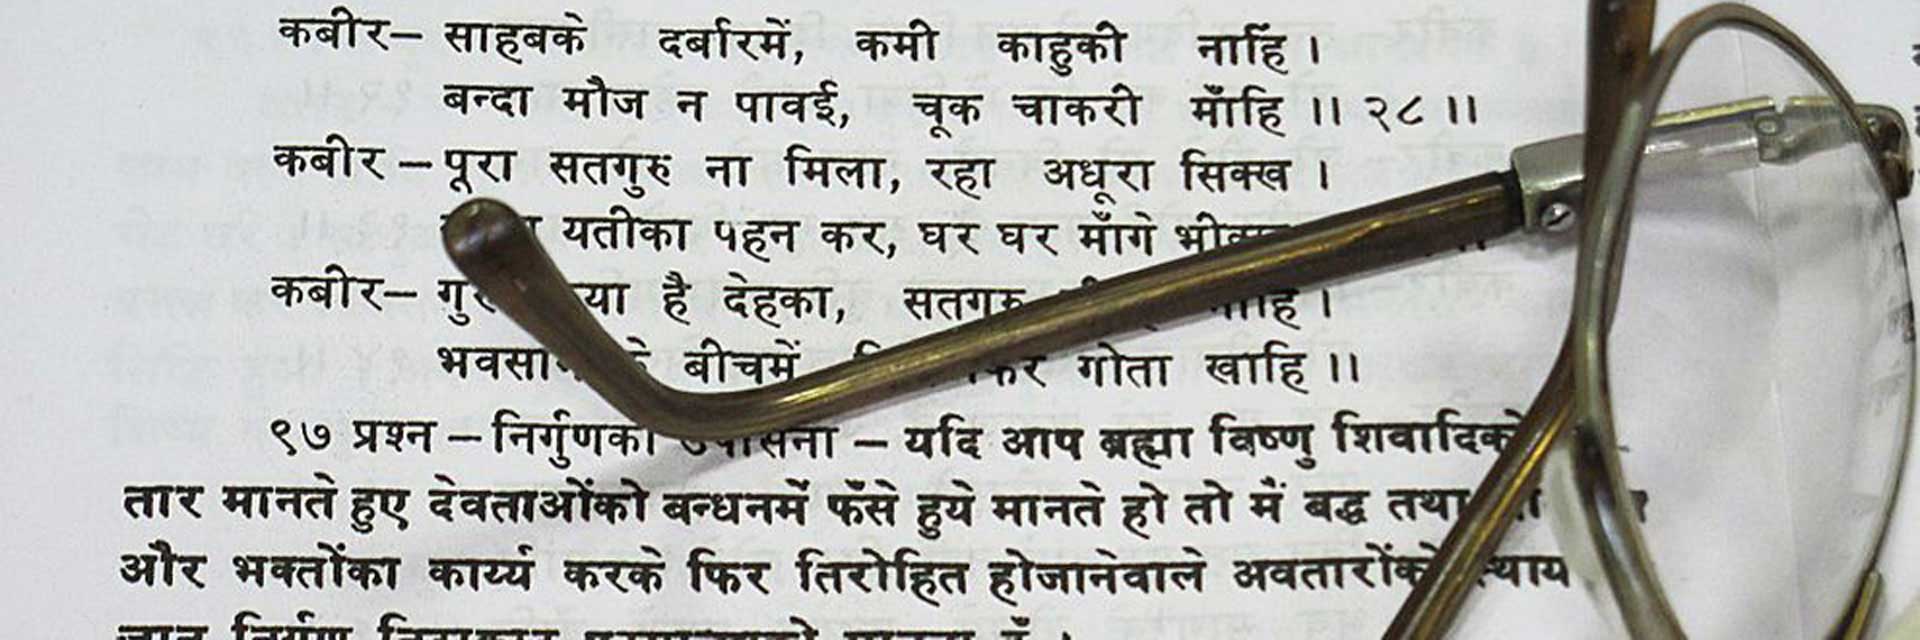 कबीर— साहबके दर्बारमें, कमी काहुकी नाहिं ।
बन्दा मौज न पावई, चूक चाकरी माँहि ।। २८ ।।
कबीर —पूरा सतगुरु ना मिला, रहा अधूरा सिक्ख ।
यतीका पहन कर, घर घर माँगे
कबीर— है देहका,
बीचमें गोता खाहि ।।
९७ प्रश्न — निर्गुणकी उपासना — यदि आप ब्रह्मा विष्णु शिवादिको
तार मानते हुए देवताओंको बन्धनमें फँसे हुये मानते हो तो मैं बद्ध तथा
और भक्तोंका कार्य्य करके फिर तिरोहित होजानेवाले अवतारोंको